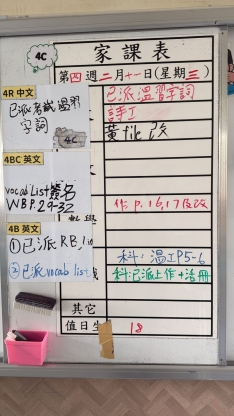 4C
家課表
第四週二月十一日(星期三)
4R 中文
已派考試溫習
字詞
4C
已派溫習字詞
詩工
黃file 改
4BC 英文
vocab List簽名
WBP.29-32
數學
作 p.16,17及改
4B 英文
①已派 RB
②已派vocab list
科: 溫工P5-6
科:已派上作+活冊
其它
值日生
18